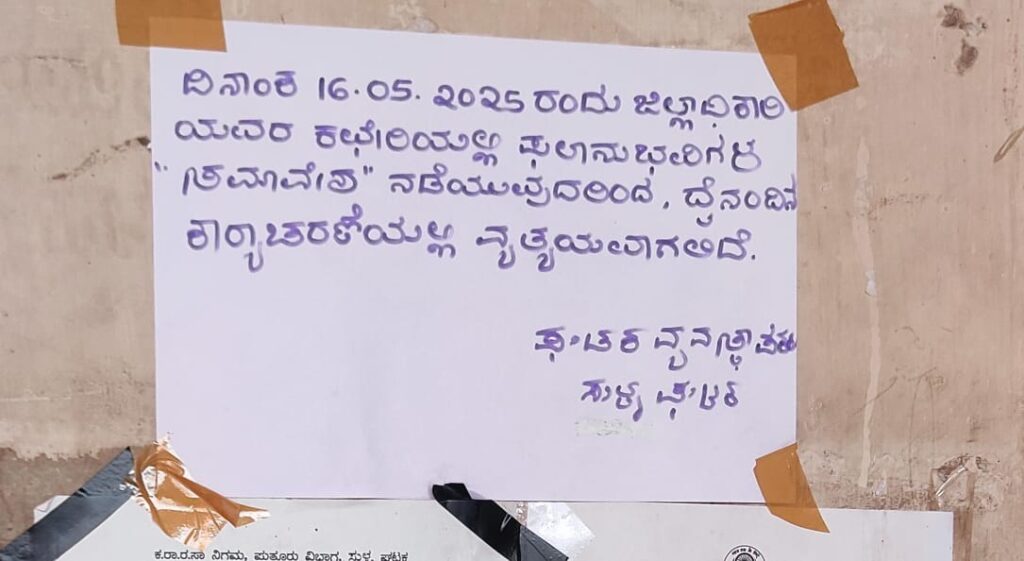 ದಿನಾಂಕ 16.05.2025 ರಂದು ಜಿಲ್ಲಾಧಿಕಾರಿ
ಯವರ ಕಛೇರಿಯಲ್ಲಿ ಫಲಾನುಭವಿಗಳ
"ಸಮಾವೇಶ" ನಡೆಯುವುದರಿಂದ, ದೈನಂದಿನ
ಕಾರ್ಯಾಚರಣೆಯಲ್ಲಿ ವ್ಯತ್ಯಯವಾಗಲಿದೆ.
ಘಟಕ ವ್ಯವಸ್ಥಾಪಕರು
ಸುಳ್ಯ ಘಟಕ
ಕ.ರಾ.ರ.ಸಾ ನಿಗಮ, ಪುತ್ತೂರು ವಿಭಾಗ, ಸುಳ್ಯ ಘಟಕ